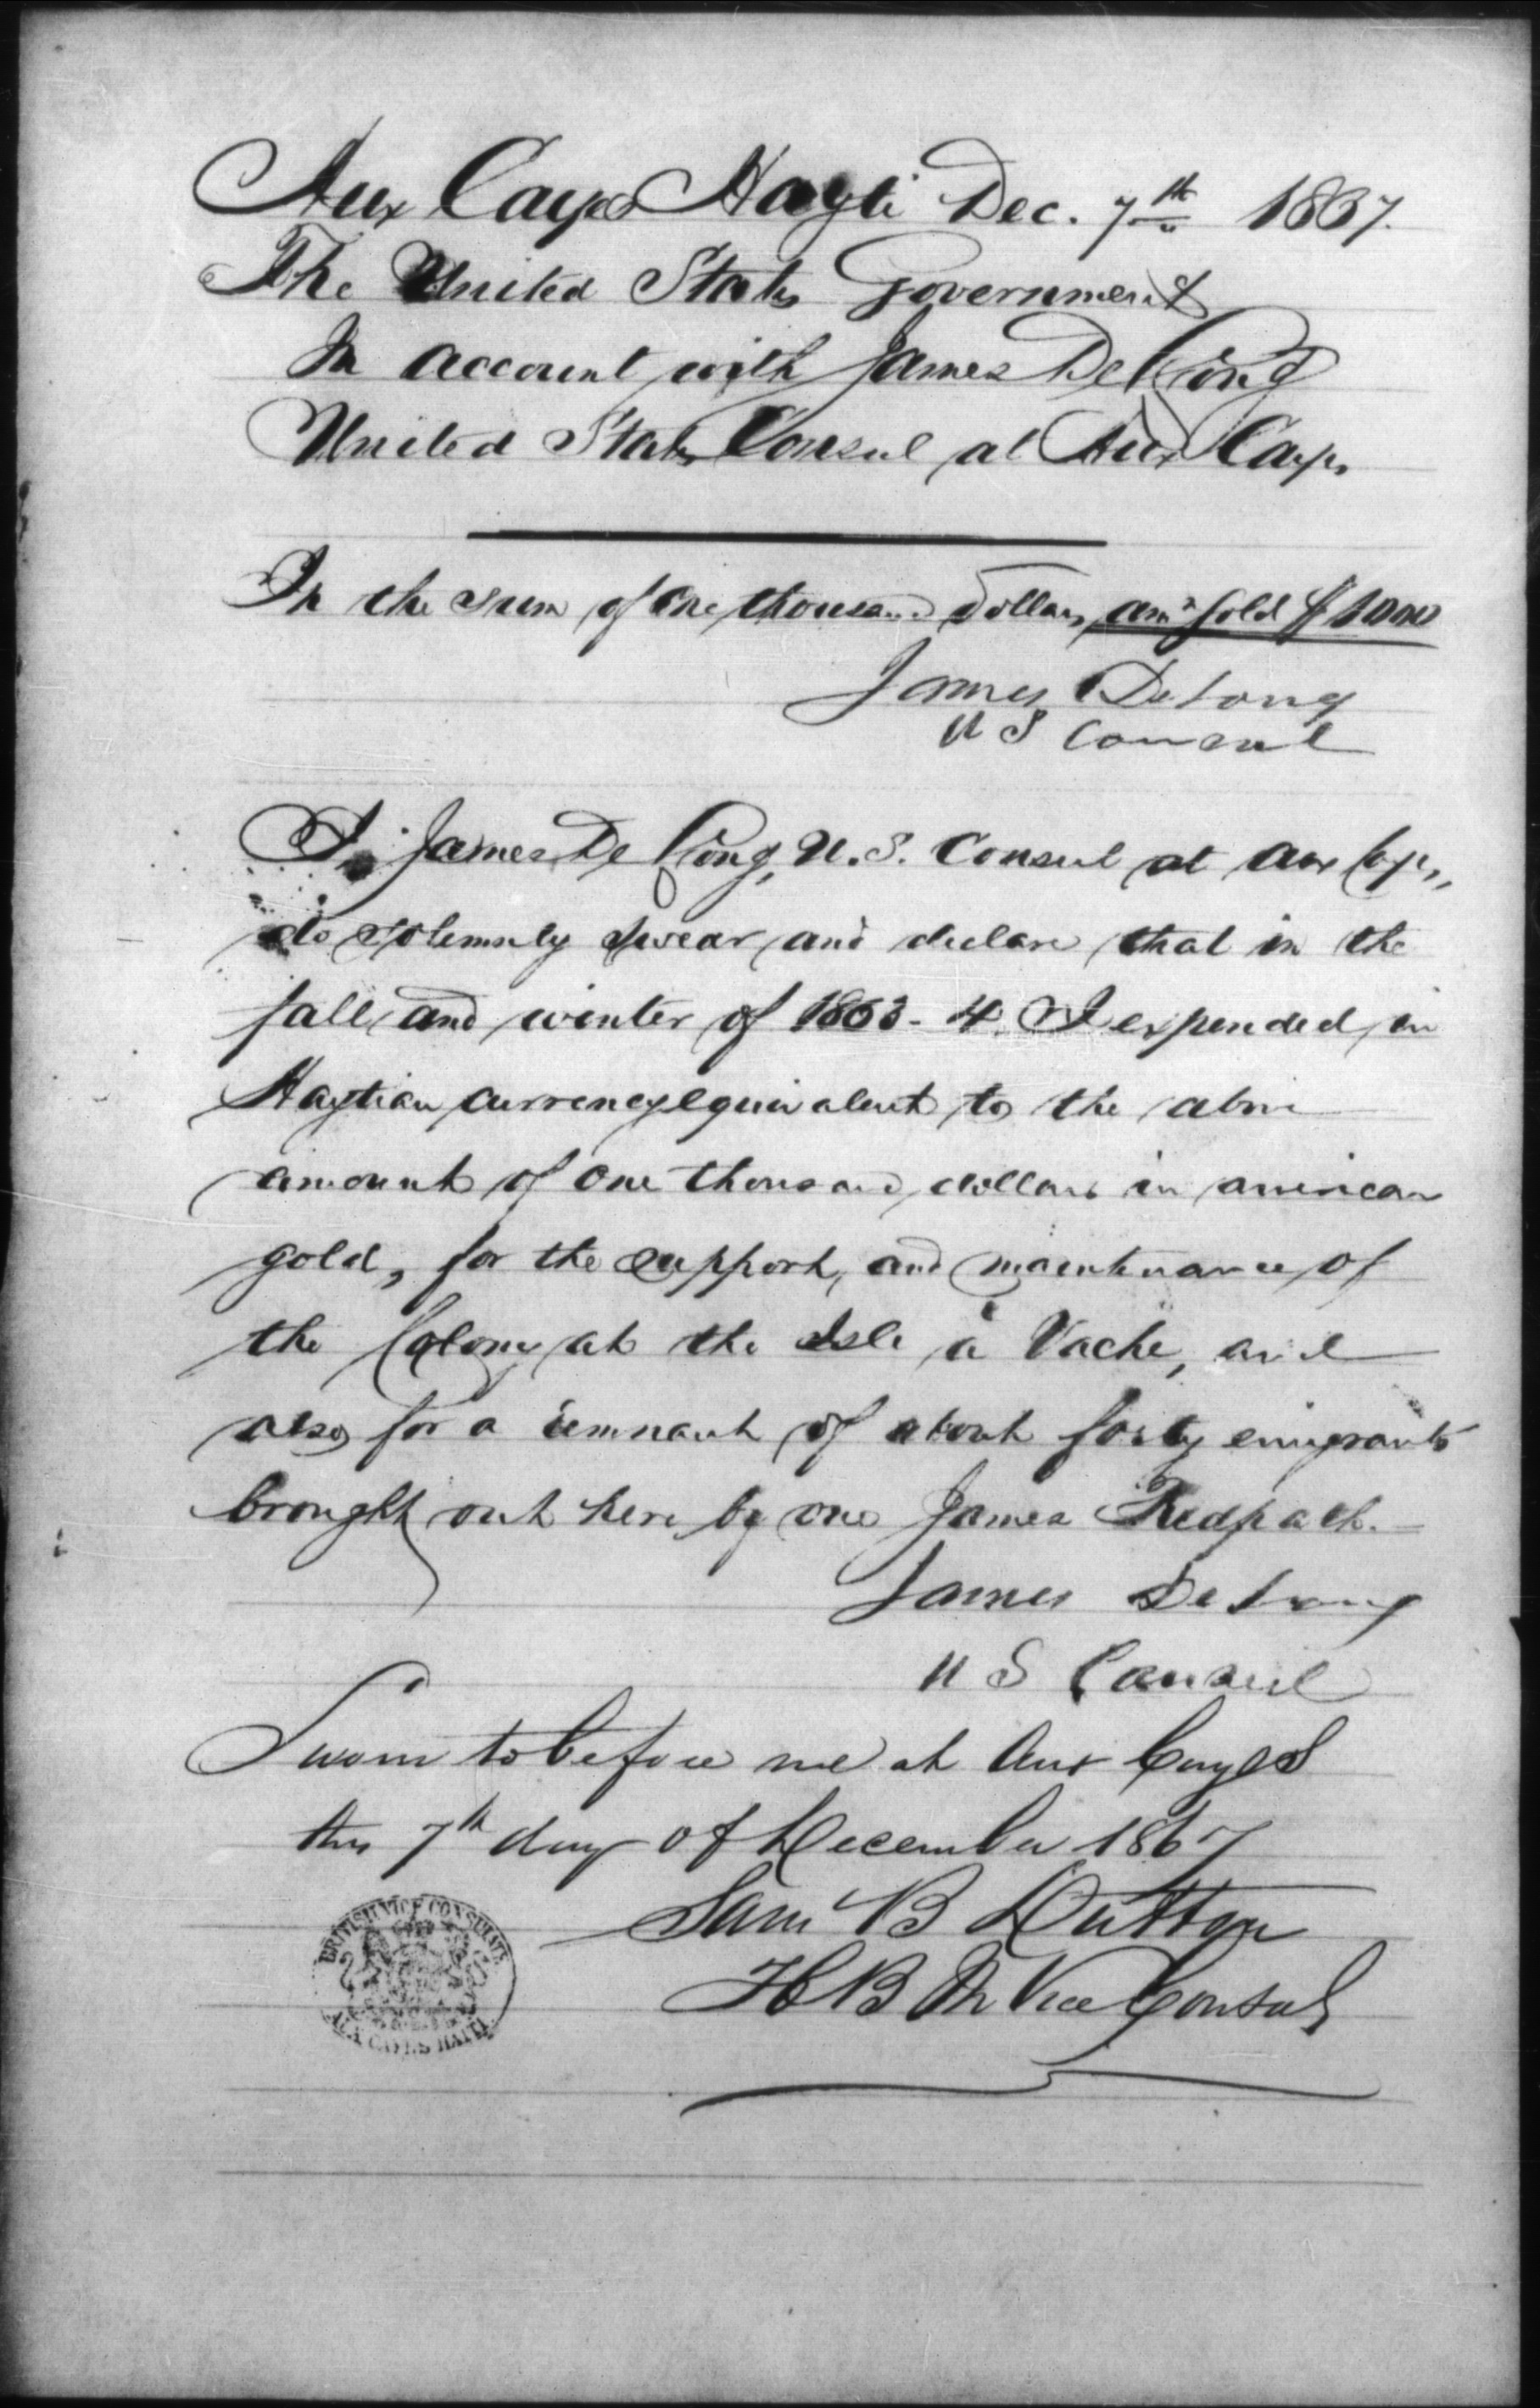 Aux Cayes Hayti Dec. 7th 1867.
The United States Government
In account with James De Long
United States Consul at Aux Cayes
In the sum of One thousand Dollars, amn gold $1000
James DeLong
U S Consul
I, James De Long, U.S. Consul at Aux Cayes,
do solemnly swear and declare that in the
fall and winter of 1863-4 I expended in
Haytian currency equivalent to the above
amount of one thousand dollars in american
gold, for the support, and maintenance of
the Colony at the Isle à Vache, and
also for a remnant of about forty emigrants
brought out here by one James Redpath.—
James DeLong
U S Consul
Sworn to before me at Aux Cayes
this 7th day of December 1867
Sam B Dutton
H B M Vice Consul
BRITISH VICE CONSULATE
AUX CAYES HAITI